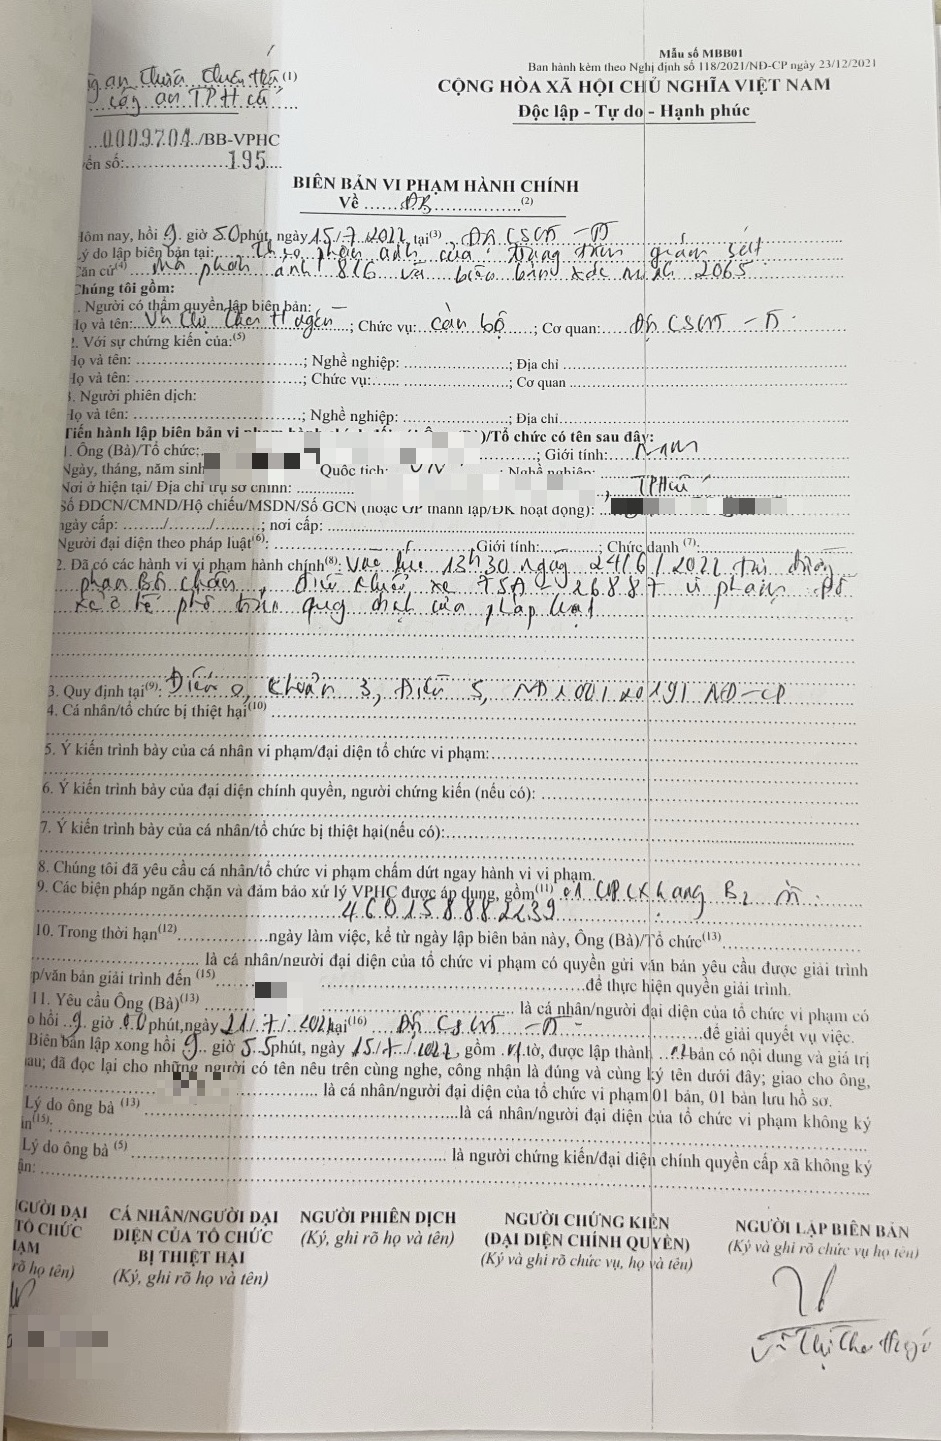 Mẫu số MBB01
Ban hành kèm theo Nghị định số 118/2021/NĐ-CP ngày 23/12/2021
an Thừa Thiên Huế (1)
Công an TP Huế
CỘNG HÒA XÃ HỘI CHỦ NGHĨA VIỆT NAM
Độc lập - Tự do - Hạnh phúc
0009704/BB-VPHC
ển số: 195
BIÊN BẢN VI PHẠM HÀNH CHÍNH
Về ĐB (2)
Hôm nay, hồi 9 giờ 50 phút, ngày 15/7/2022 tại(3) Đội CSGT - TT
Lý do lập biên bản tại: Theo phản ánh của trung tâm giám sát
Căn cứ(4) Mã phản ánh 816 và biên bản xác minh 2065
Chúng tôi gồm:
1. Người có thẩm quyền lập biên bản:
Họ và tên: Thị; Chức vụ: cán bộ; Cơ quan: Đội CSGT - TT
2. Với sự chứng kiến của:(5)
Họ và tên: ; Nghề nghiệp: ; Địa chỉ
Họ và tên: ; Chức vụ: ; Cơ quan
3. Người phiên dịch:
Họ và tên: ; Nghề nghiệp: ; Địa chỉ
Tiến hành lập biên bản vi )/Tổ chức có tên sau đây:
1. Ông (Bà)/Tổ chức: ; Giới tính: Nam
Ngày, tháng, năm sinh Quốc tịch: VN ; Nghề nghiệp:
Nơi ở hiện tại/ Địa chỉ trụ sở chính: , TP Huế
Số ĐDCN/CMND/Hộ chiếu/MSDN/Số GCN (hoặc GP thành lập/ĐK hoạt động):
ngày cấp: / / ; nơi cấp:
Người đại diện theo pháp luật(6): Giới tính: ; Chức danh (7):
2. Đã có các hành vi vi phạm hành chính(8): Vào lúc 13h30 ngày 24/6/2022 tại đường
phan Bội Châu, điều khiển xe 75A-26887 vi phạm đỗ
xe ở hè phố trái quy định của pháp luật
3. Quy định tại(9): Điểm e, khoản 3, Điều 5, NĐ 100/2019/NĐ-CP
4. Cá nhân/tổ chức bị thiệt hại(10)
5. Ý kiến trình bày của cá nhân vi phạm/đại diện tổ chức vi phạm:
6. Ý kiến trình bày của đại diện chính quyền, người chứng kiến (nếu có):
7. Ý kiến trình bày của cá nhân/tổ chức bị thiệt hại(nếu có):
8. Chúng tôi đã yêu cầu cá nhân/tổ chức vi phạm chấm dứt ngay hành vi vi phạm.
9. Các biện pháp ngăn chặn và đảm bảo xử lý VPHC được áp dụng, gồm(11) 01 GPLX hạng B2
460158882239
10. Trong thời hạn(12) ngày làm việc, kể từ ngày lập biên bản này, Ông (Bà)/Tổ chức(13)
là cá nhân/người đại diện của tổ chức vi phạm có quyền gửi văn bản yêu cầu được giải trình
p/văn bản giải trình đến (15) để thực hiện quyền giải trình.
11. Yêu cầu Ông (Bà)(13) là cá nhân/người đại diện của tổ chức vi phạm có
o hồi 9 giờ 00 phút, ngày 21/7/2022 tại(16) Đội CSGT - TT để giải quyết vụ việc.
Biên bản lập xong hồi 9 giờ 55 phút, ngày 15/7/2022, gồm 01 tờ, được lập thành 02 bản có nội dung và giá trị
au; đã đọc lại cho những người có tên nêu trên cùng nghe, công nhận là đúng và cùng ký tên dưới đây; giao cho ông,
là cá nhân/người đại diện của tổ chức vi phạm 01 bản, 01 bản lưu hồ sơ.
Lý do ông bà (13) là cá nhân/người đại diện của tổ chức vi phạm không ký
n(15):
Lý do ông bà (5) là người chứng kiến/đại diện chính quyền cấp xã không ký
ận:
NGƯỜI ĐẠI
TỔ CHỨC
HẠM
rõ họ tên)
CÁ NHÂN/NGƯỜI ĐẠI
DIỆN CỦA TỔ CHỨC
BỊ THIỆT HẠI
(Ký, ghi rõ họ và tên)
NGƯỜI PHIÊN DỊCH
(Ký, ghi rõ họ và tên)
NGƯỜI CHỨNG KIẾN
(ĐẠI DIỆN CHÍNH QUYỀN)
(Ký và ghi rõ chức vụ, họ và tên)
NGƯỜI LẬP BIÊN BẢN
(Ký và ghi rõ chức vụ họ tên)
Thị